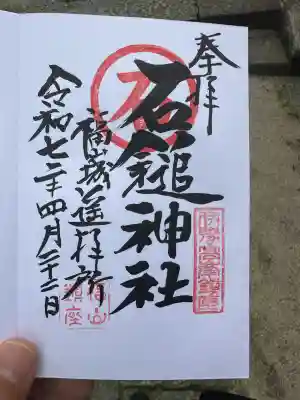 奉拝
石鎚神社
福山城遥拝所
令和七年四月二十二日